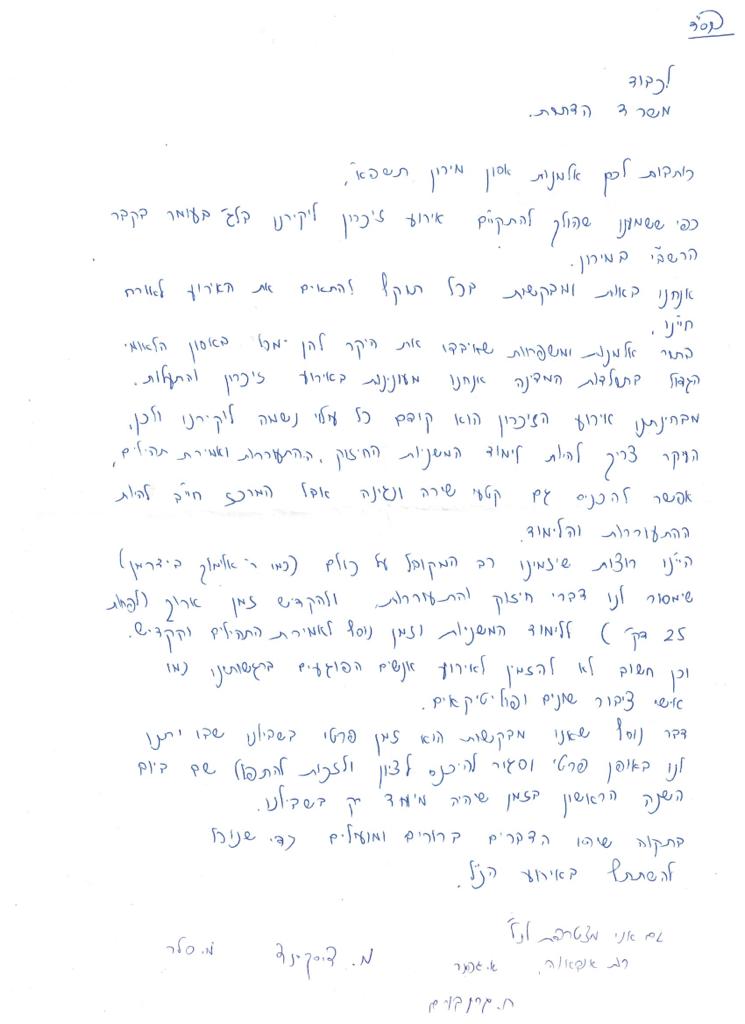 בס"ד
לכבוד
משרד הדתות.
כותבות לכם אלמנות אסון מירון תשפ"א,
כפי ששמענו שהולך להתקיים אירוע זיכרון ליקירנו בל"ג בעומר בקבר
הרשב"י במירון.
אנחנו באות ומבקשות בכל תוקף להתאים את האירוע לאורח
חיינו,
בתור אלמנות ומשפחות שאיבדו את היקר להן מכל באסון הלאומי
הגדול בתולדות המדינה אנחנו מעונינות באירוע זיכרון והתעלות.
מבחינתנו אירוע הזיכרון הוא קודם כל עלוי נשמה ליקירנו ולכן,
העיקר צריך להיות לימוד המשניות החיזוק, ההתעוררות ואמירת תהילים,
אפשר להכניס גם קטעי שירה ונגינה אבל המרכז חייב להיות
ההתעוררות והלימוד.
היינו רוצות שיזמינו רב המקובל על כולם (כמו ר' אלימלך בידרמן)
שימסור לנו דברי חיזוק והתעוררות, ולהקדיש זמן ארוך (לפחות
25 דק') ללימוד המשניות וזמן נוסף לאמירת התהילים וקדיש.
וכן חשוב לא להזמין לאירוע אנשים הפוגעים ברגשותינו כמו
אישי ציבור שונים ופוליטיקאים.
דבר נוסף שאנו מבקשות הוא זמן פרטי בשבילנו שבו יתנו
לנו באופן פרטי וסגור להיכנס לציון ולזכות להתפלל שם ביום
השנה הראשון בזמן שיהיה מיועד רק בשבילנו.
בתקוה שיהיו הדברים ברורים ומועילים כדי שנוכל
להשתתף באירוע הנ"ל.
גם אני מצטרפת לנ"ל
מ. דיסקינד מ. סלר